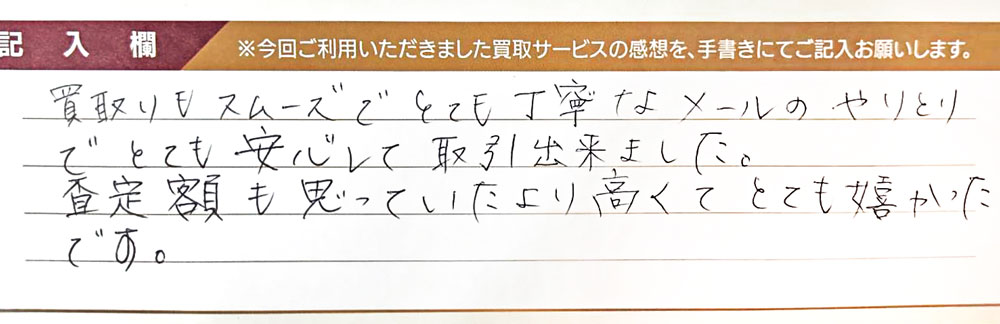 記入欄
※今回ご利用いただきました買取サービスの感想を、手書きにてご記入お願いします。
買取りもスムーズでとても丁寧なメールのやりとり
でとても安心して取引出来ました。
査定額も思っていたより高くてとても嬉かった
です。